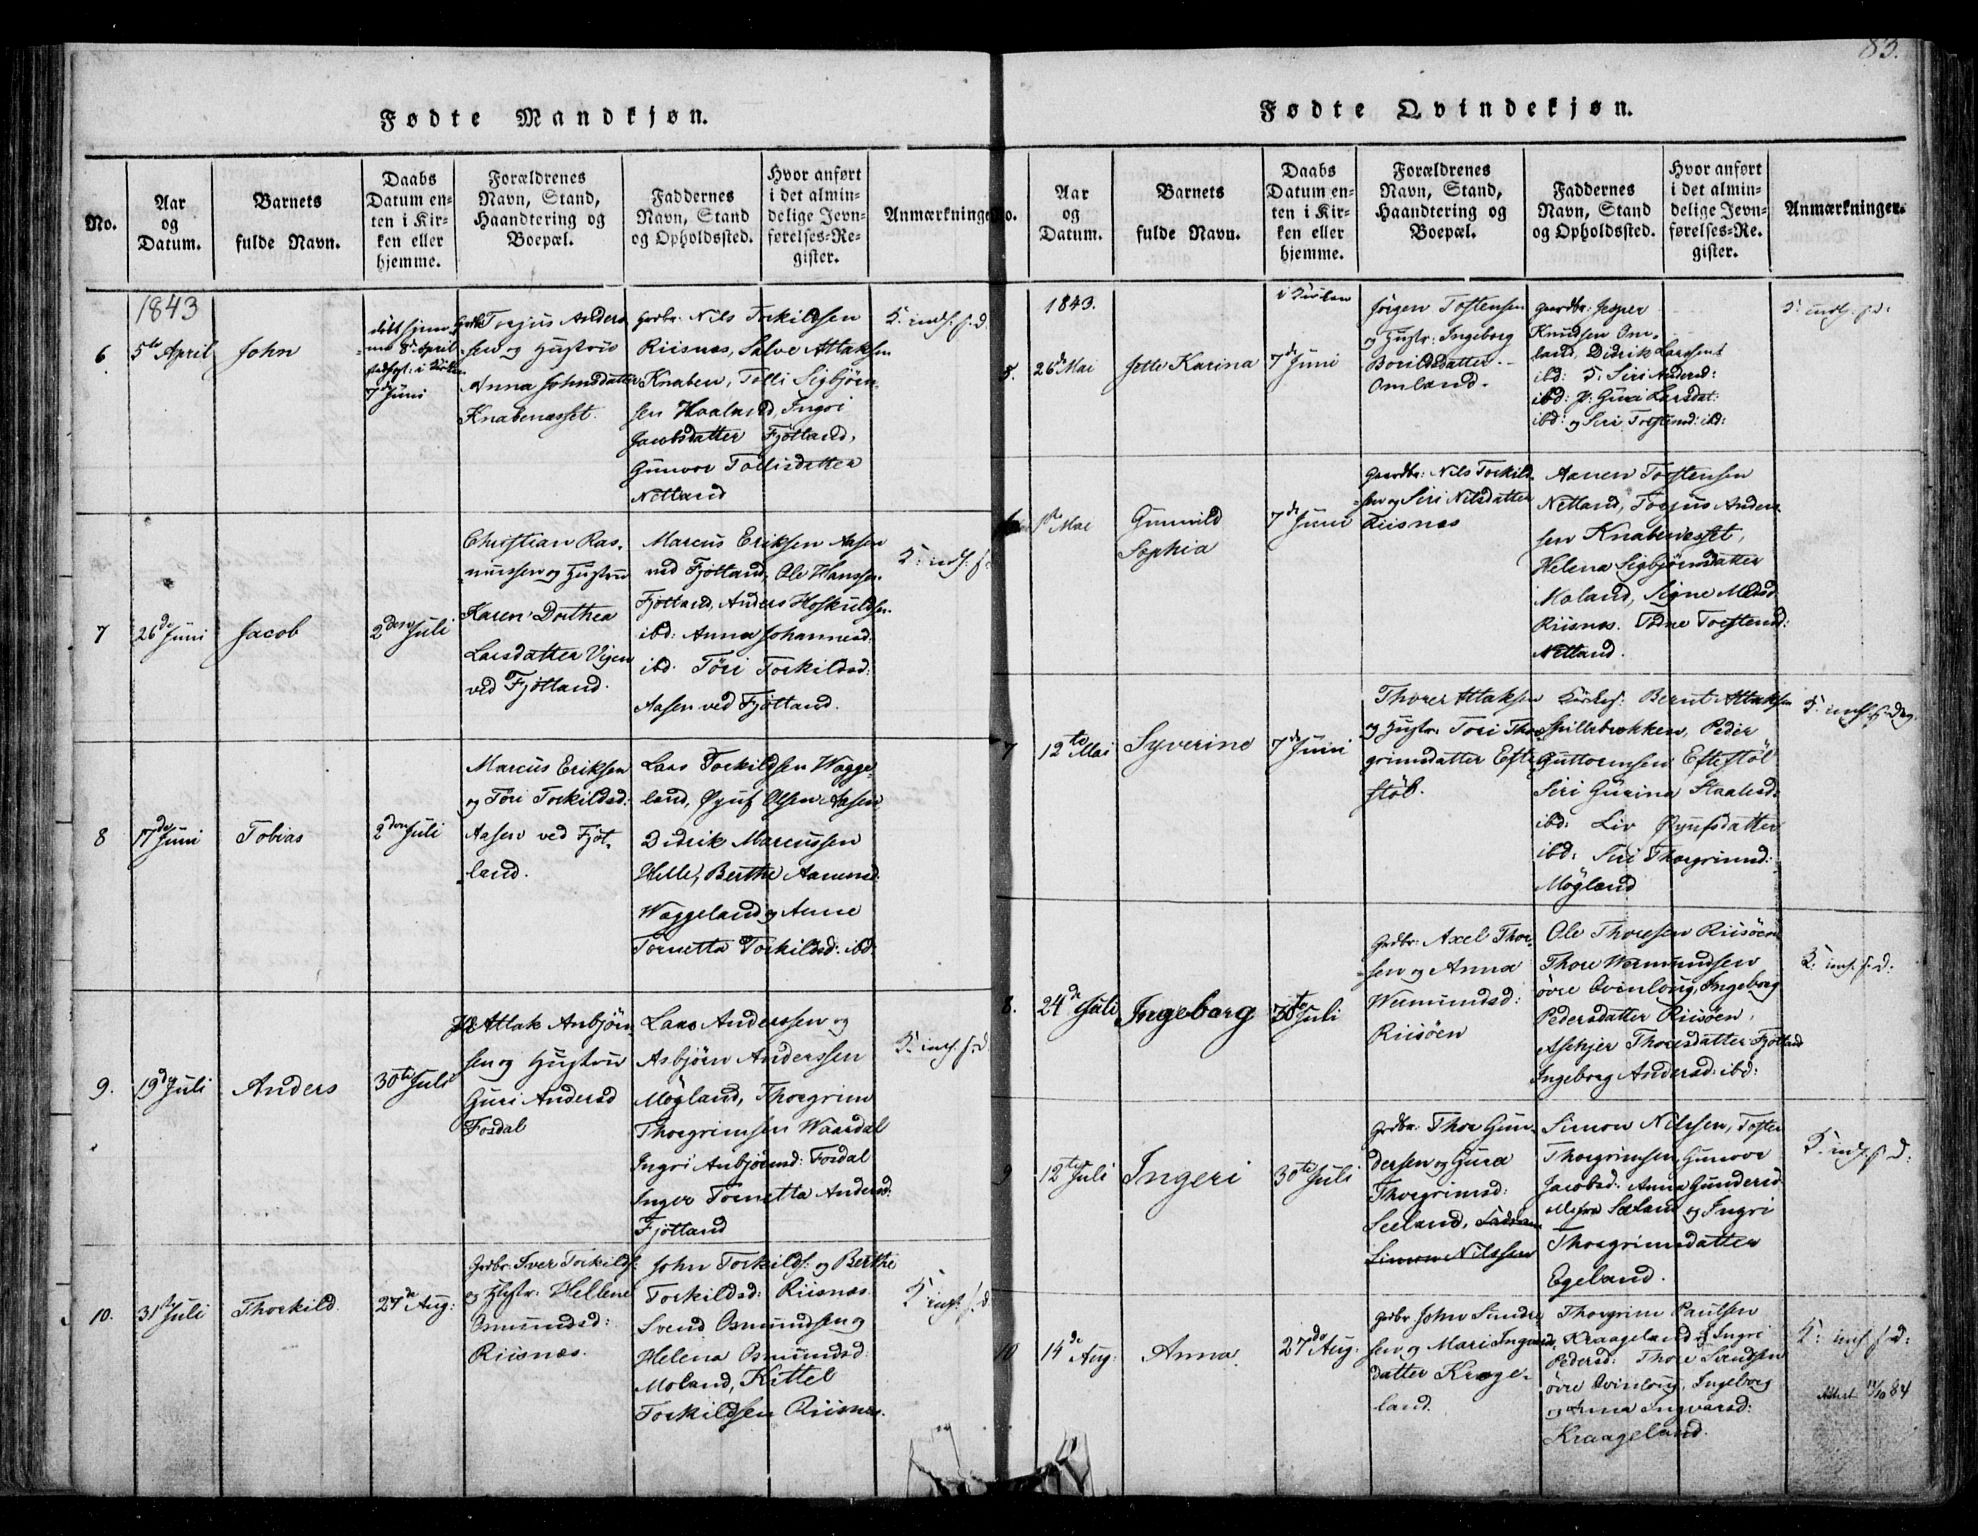 83.
Fødte Mandkjøn.
No.
Aar
og
Datum.
Barnets
fulde Navn.
Daabs
Datum en-
ten i Kir-
ken eller
hjemme.
Forældrenes
Navn, Stand,
Haandtering og
Boepæl.
Faddernes
Navn, Stand
og Opholdssted.
Hvor anført
i det almin-
delige Jevn-
førelses-Re-
gister.
Anmærkninger
1843
6.
5te April
John
8de April
i Kirken
7de Juni
Torjus Anders
sen og Hustrue
Anna Johnsdatter
Knabenæsset.
Grdbr: Nils Torkildsen
Riisnæs, Salve Attaksen
Knaben, Tolli Sigbjørn-
sen Haaland, Ingri
Jacobsdatter Fjotland,
Gunvor Tollisdatter
Netland
7
26de Juni
Jacob
2den Juli
Christian Ras-
mussen og Hustru
Karen Dorthea
Larsdatter Vigen
ved Fjotland.
Marcus Eriksen Aasen
ved Fjotland, Ole Hanssen
Fjotland, Anders Hoskuldsen
ibd: Anna Johannesd:
ibd. Tøri Torkildsd:
Aasen ved Fjotland.
8
17de Juni
Tobias
2den Juli
Marcus Eriksen
og Töri Torkildsd:
Aasen ved Fjot-
land.
Lars Torkildsen Wogge-
land, Øyuf Olsen Aasen
Didrik Marcussen
Helle, Berthe Aanensd:
Woggeland og Anne
Tornetta Torkildsd: ibd:
9.
19de Juli
Anders
30te Juli
Attak Anbjørn
sen og Hustru
Guri Andersd
Fosdal
Lars Anderssen og
Asbjørn Anderssen
Mögland, Thorgrim
Thorgrimsen Waardal
Ingri Anbjørnsd: Fosdal
Inger Tornetta Andersd:
Fjotland
10.
31te Juli
Thorkild.
27de Aug:
Grdbr: Iver Torkilds:
og Hustr: Hellene
Osmundsd:
Riisnæs.
John Torkilds: og Berthe
Torkildsd: Riisnæs
Svend Osmundsen og
Helena Osmundsd:
Moland, Kittel
Torkildsen Riisnæs.
Fødte Qvindekjøn.
No.
Aar
og
Datum.
Barnets
fulde Navn.
Daabs
Datum en-
ten i Kir-
ken eller
hjemme.
Forældrenes
Navn, Stand,
Haandtering og
Boepæl.
Faddernes
Navn, Stand
og Opholdssted.
Hvor anført
i det almin-
delige Jevn-
førelses-Re-
gister.
Anmærkninger.
1843.
i Kirken
5.
26de Mai
Jette Karina
7de Juni
Jörgen Tostensen
og Hustr: Ingeborg
Borildsdatter
Omland.
Gaardbr: Jesper
Knudsen Om-
land. Didrik Larssen
ibd: Siri Andersd:
ibd: Gura Larsdat:
ibd: og Siri Torstensd: ibd:
Mai
Gunvild
Sophia
7de Juni
Gaardbr: Nils Torkild-
sen og Siri Nilsdatter
Riisnæs
Aanen Torstensen
Netland, Torjus Anders
sen Knabenæsset,
Helena Sigbjørnsdatter
Moland, Signe
Riisnæs. Todne Torstensd:
Netland.
7
12te Mai
Syverine
7de Juni
Thorer Attaksen
og Hustr: Tori Thor
grimsdatter Efte
stöl.
Bernt Attaksen
Spillebrokken, Peder
Guttormsen Eftestöl
Siri Gurina
ibd: Liv Øyufsdatter
ibd: Siri Thorgrimsd:
Mögland
8.
24de Juli
Ingeborg
30te Juli
Grdbr: Axel Thor-
sen og Anna
Wermundsd:
Riisöen
Ole Thoresen Riisöen
Thore Wermundsen
övre Qvinloug, Ingeborg
Pedersdatter Riisöen,
Aschjer Thoresdatter Fjotland
Ingeborg Andersd: ibd:
9
12te Juli
Ingeri
30te Juli
Grdbr: Thore Gun-
dersen og Gura
Thorgrimsd:
Seeland,
Simon Nilssen
Simon Nilssen, Toster
Thorgrimsen Gunvor
Jacobsd: Anna Gundersd
Seeland og Ingri
Thorgrimsdatter
Egeland.
10
14de Aug:
Anna.
27de Aug:
Grdbr John Sindre
sen og Mari Ingvards
datter Krage-
land.
Thorgrim Paulsen
Kraageland og Ingri
Pedersd: Thore Svendsen
övre Qvinloug, Ingeborg
og Anna Ingvarsd:
Kraageland.
Attest 84